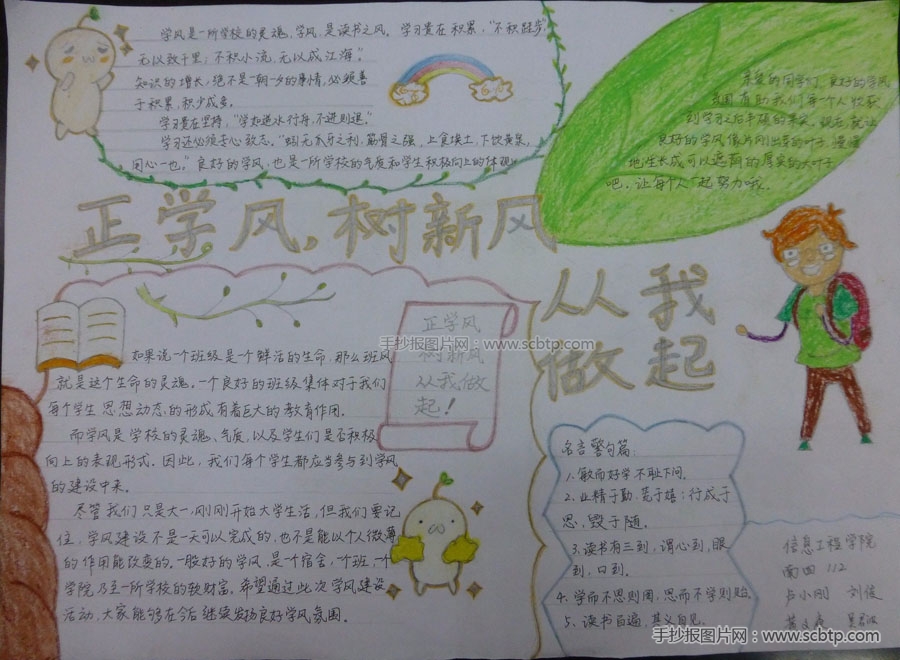 学风是一所学校的灵魂,学风,是读书之风。学习贵在积累,"不积跬步,
无以致千里;不积小流,无以成江海。"
知识的增长,绝不是一朝一夕的事情,必须善
于积累,积少成多。
学习贵在坚持,"学如逆水行舟,不进则退。"
学习还必须专心致志。"蚓无爪牙之利,筋骨之强,上食埃土,下饮黄泉,
用心一也。"良好的学风,也是一所学校的气质和学生积极向上的体现。
亲爱的同学们,良好的学风
有助我们每一个人收获
到学习之后丰硕的果实。现在,就让
良好的学风像片刚出芽的叶子,慢慢
地生长成可以遮荫的厚实的大叶子
吧。让每个人一起努力哦。
正学风,树新风
从我
做起
正学风
树新风
从我做
起!
手抄报图片网:www.scbtp.com
如果说一个班级是一个鲜活的生命,那么班风
就是这个生命的灵魂。一个良好的班级集体对于我们
每个学生思想动态的形成有着巨大的教育作用。
而学风是学校的灵魂、气质,以及学生们是否积极
向上的表现形式。因此,我们每个学生都应当参与到学风
的建设中来。
尽管我们只是大一,刚刚开始大学生活,但我们要记
住,学风建设不是一天可以完成的,也不是能以个人微薄
的作用能改变的。一股好的学风,是一个宿舍,一个班,一个
学院乃至一所学校的软财富。希望通过此次学风建设
活动,大家能够在今后继续发扬良好学风氛围。
名言警句篇:
1.敏而好学不耻下问。
2.业精于勤,荒于嬉;行成于
思,毁于随。
3.读书有三到,谓心到,眼
到,口到。
4.学而不思则罔,思而不学则殆。
5.读书百遍,其义自见。
信息工程学院
南四 112
卢小刚 刘俊
手抄报图片网:www.scbtp.com